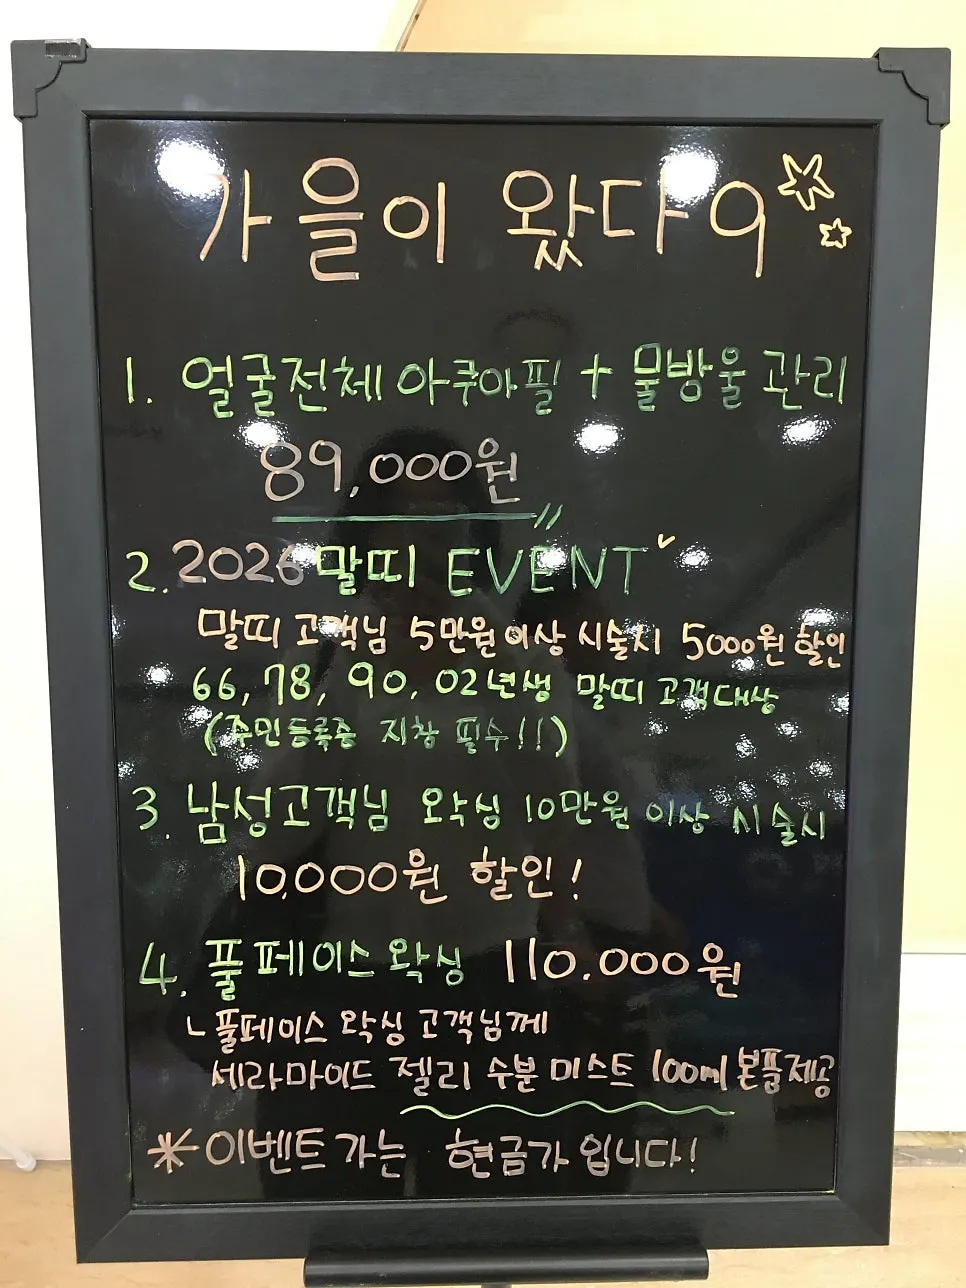 가을이 왔다9
1. 얼굴전체 아쿠아필 + 물방울 관리
89,000원
2. 2026 말띠 EVENT
말띠 고객님 5만원이상 시술시 5000원 할인
66, 78, 90, 02년생 말띠 고객대상
(주민등록증 지창 필수!!)
3. 남성고객님 왁싱 10만원 이상 시술시
10,000원 할인!
4. 풀페이스왁싱 110.000원
ㄴ풀페이스 왁싱 고객님께
세라마이드 젤리 수분 미스트 100ml 본품제공
*이벤트가는 현금가 입니다!